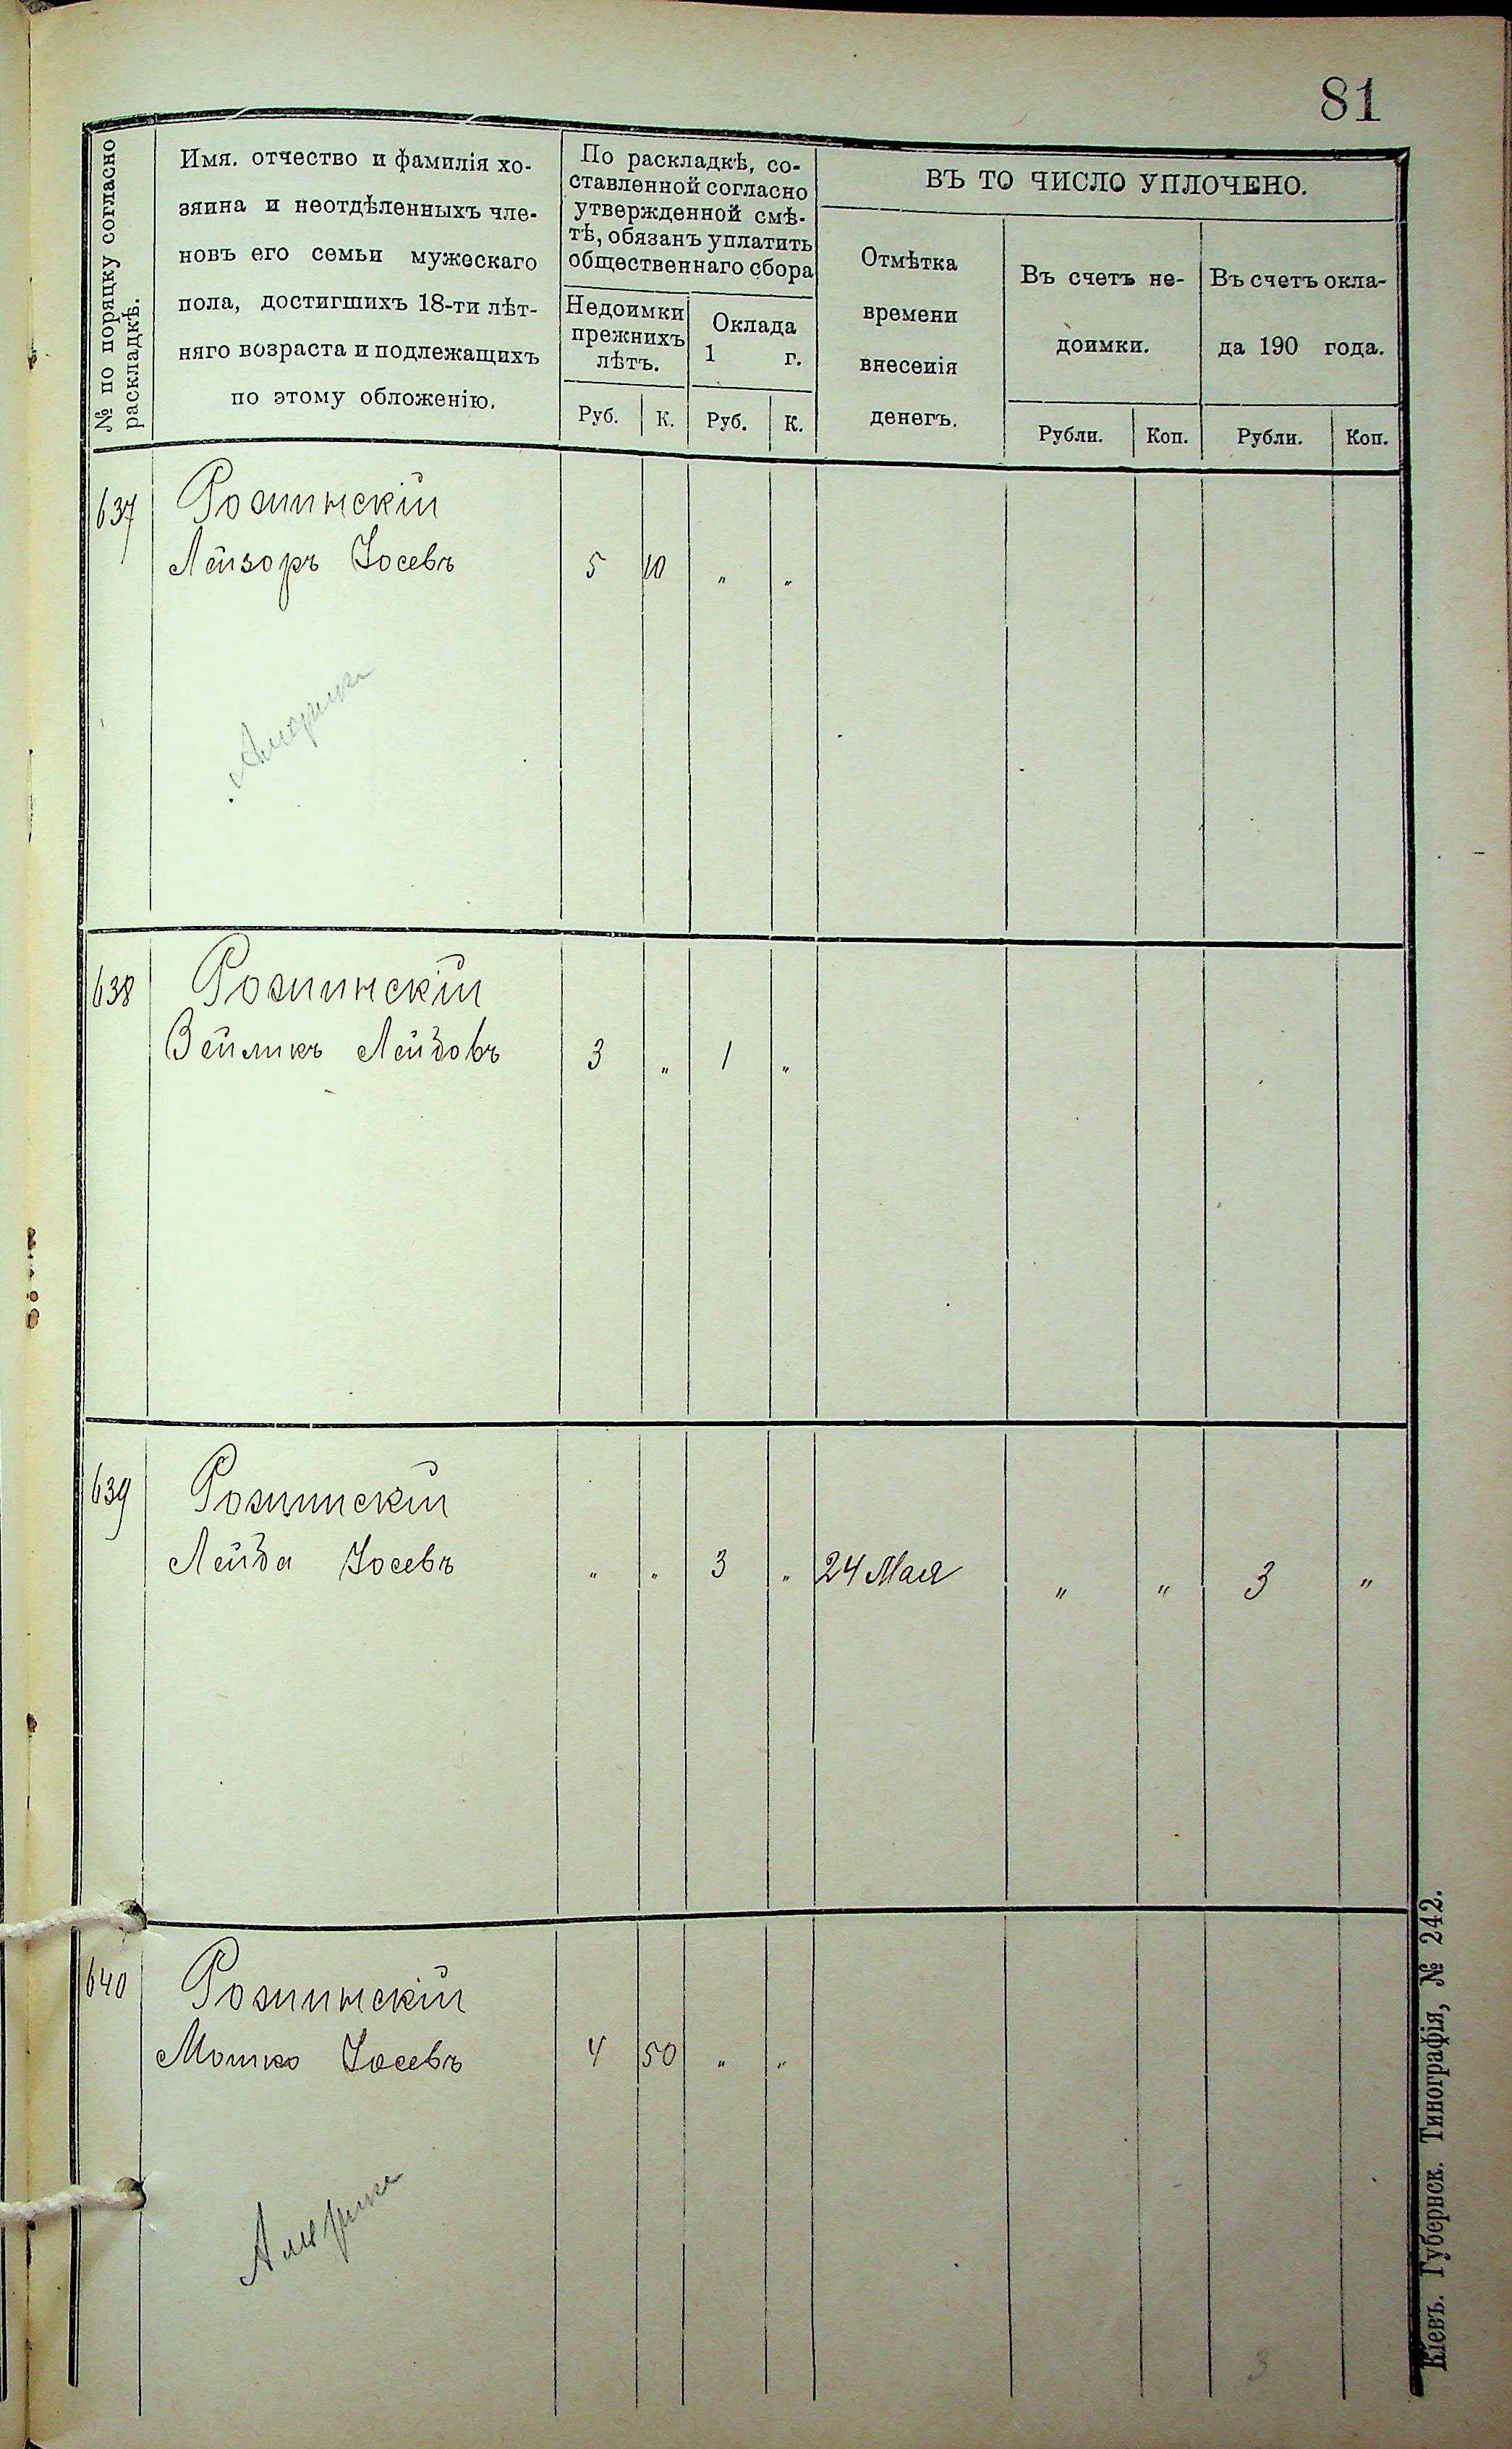 81
№ по поряцку согласно
раскладкѣ.
Имя. отчество и фамилія хо-
зяина и неотдѣленныхъ чле-
новъ его семьи мужескаго
пола, достигшихъ 18-ти лѣт-
няго возраста и подлежащихъ
по этому обложенію.
По раскладкѣ, со-
ставленной согласно
утвержденной смѣ-
тѣ, обязанъ уплатить
общественнаго сбора
Недоимки
прежнихъ
лѣтъ.
Оклада
1 г.
Руб. К. Руб. К.
ВЪ ТО ЧИСЛО УПЛОЧЕНО.
Отмѣтка
времени
внесенія
денегъ.
Въ счетъ не-
доимки.
Въ счетъ окла-
да 190 года.
Рубли. Коп. Рубли. Коп.
637 Рожинскій
Лейзоръ Іосевъ 5 10 " "
Америка
638 Рожинскій
Зейликъ Лейбовъ 3 " 1 "
639 Рожинскій
Лейба Іосевъ " " 3 " 24 Мая " " 3 "
640 Рожинскій
Мошко Іосевъ 4 50 " "
Америка
3
Кіевъ. Губернск. Типографія, № 242.